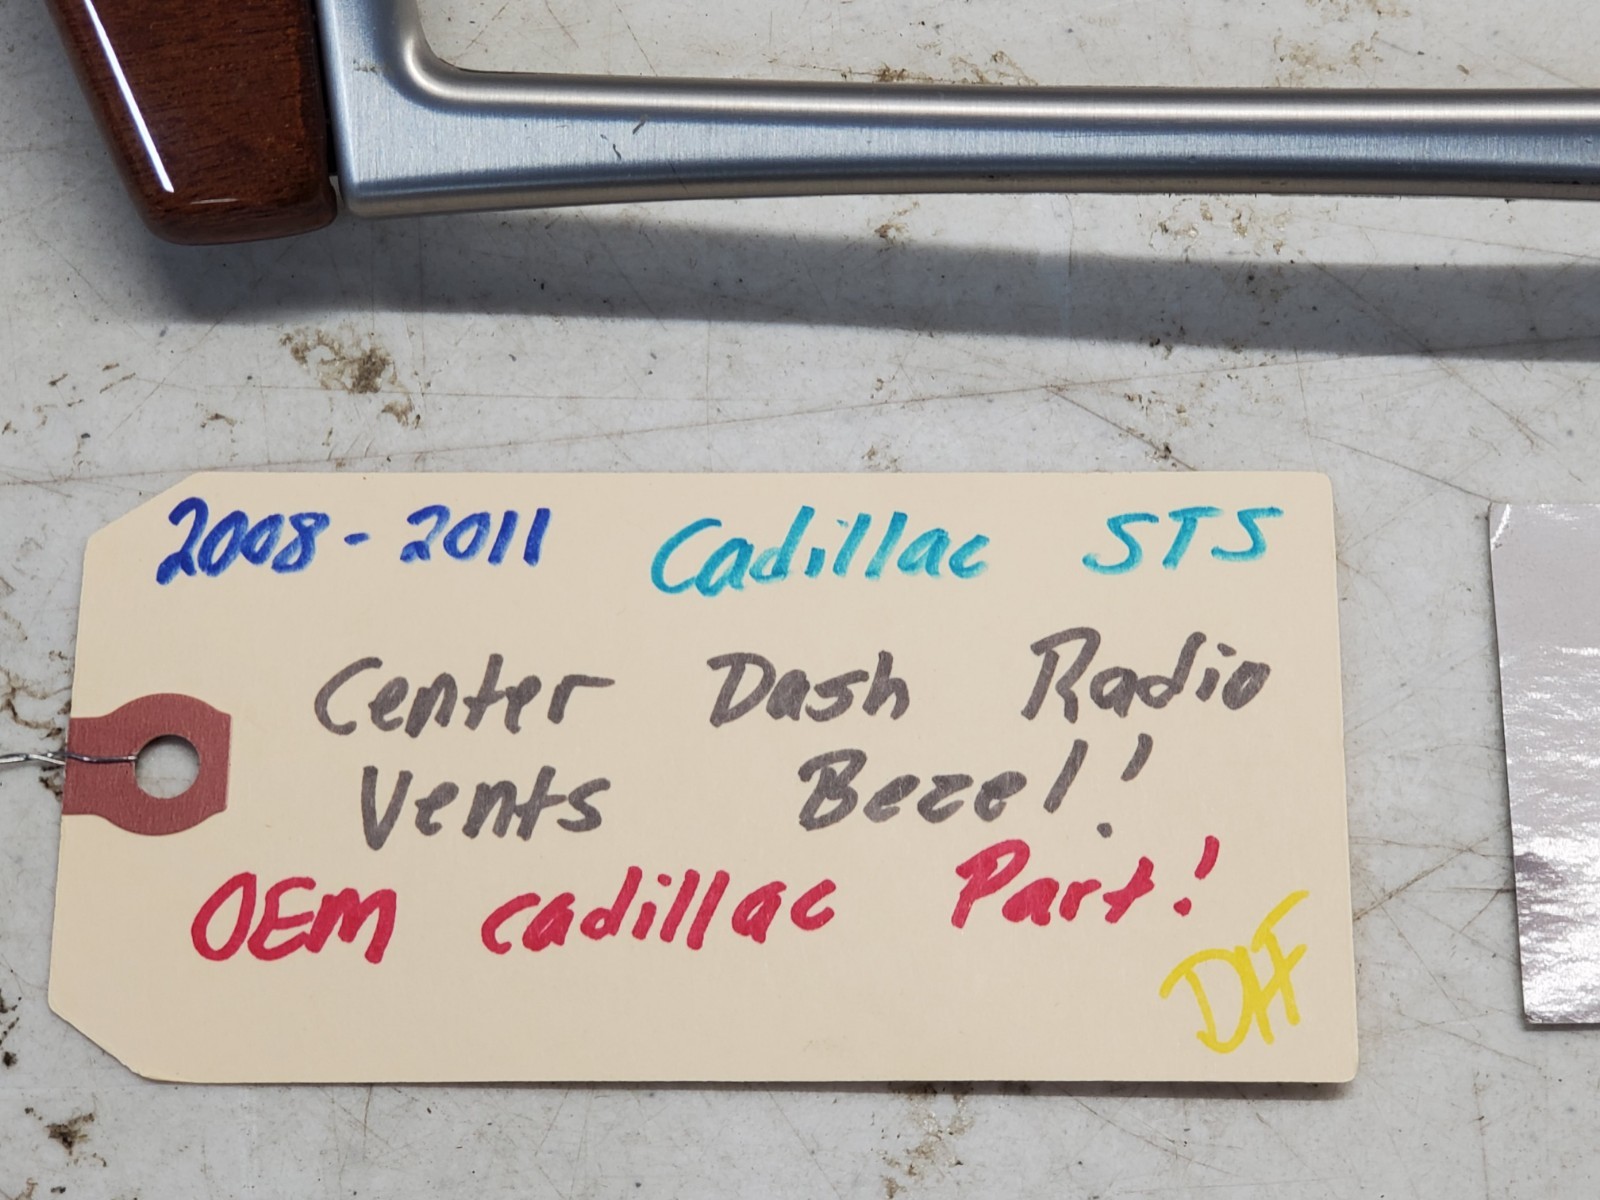 2008-2011 Cadillac STS
Center Dash Radio
Vents Bezel!
OEM cadillac Part!
DHF